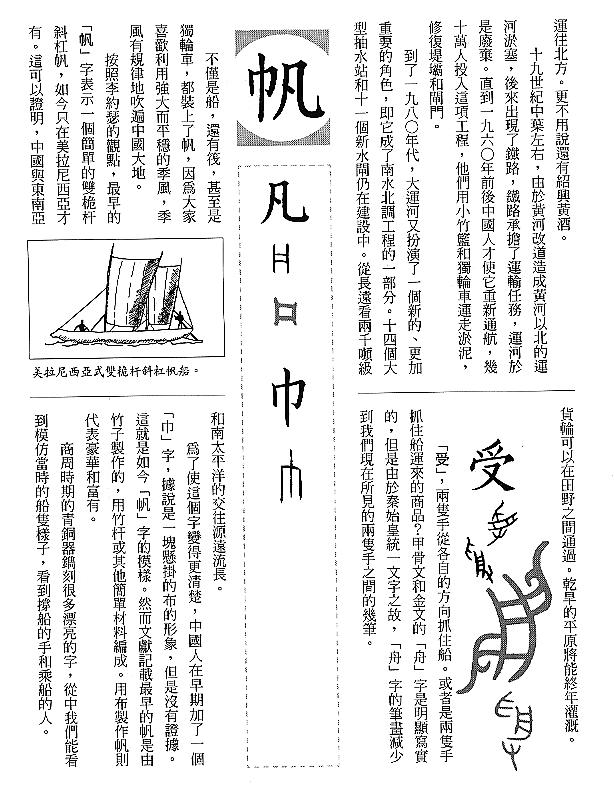 運往北方。更不用說還有紹興黃酒。
十九世紀中葉左右，由於黃河改道造成黃河以北的運
河淤塞，後來出現了鐵路，鐵路承擔了運輸任務，運河於
是廢棄。直到一九六〇年前後中國人才使它重新通航，幾
十萬人投入這項工程，他們用小竹籃和獨輪車運走淤泥，
修復堤壩和閘門。
到了一九八〇年代，大運河又扮演了一個新的、更加
重要的角色，即它成了南水北調工程的一部分。十四個大
型抽水站和十一個新水閘仍在建設中。從長遠看兩千噸級
貨輪可以在田野之間通過。乾旱的平原將能終年灌溉。
受
「受」，兩隻手從各自的方向抓住船。或者是兩隻手
抓住船運來的商品？甲骨文和金文的「舟」字是明顯寫實
的，但是由於秦始皇統一文字之故，「舟」字的筆畫減少
到我們現在所見的兩隻手之間的幾筆。
帆
凡
巾
不僅是船，還有筏，甚至是
獨輪車，都裝上了帆，因爲大家
喜歡利用強大而平穩的季風，季
風有規律地吹遍中國大地。
按照李約瑟的觀點，最早的
「帆」字表示一個簡單的雙桅杆
斜杠帆，如今只在美拉尼西亞才
有。這可以證明，中國與東南亞
美拉尼西亞式雙桅杆斜杠帆船。
和南太平洋的交往源遠流長。
爲了使這個字變得更清楚，中國人在早期加了一個
「巾」字，據說是一塊懸掛的布的形象，但是沒有證據。
這就是如今「帆」字的模樣。然而文獻記載最早的帆是由
竹子製作的，用竹杆或其他簡單材料編成。用布製作帆則
代表豪華和富有。
商周時期的青銅器鐫刻很多漂亮的字，從中我們能看
到模仿當時的船隻樣子，看到撐船的手和乘船的人。